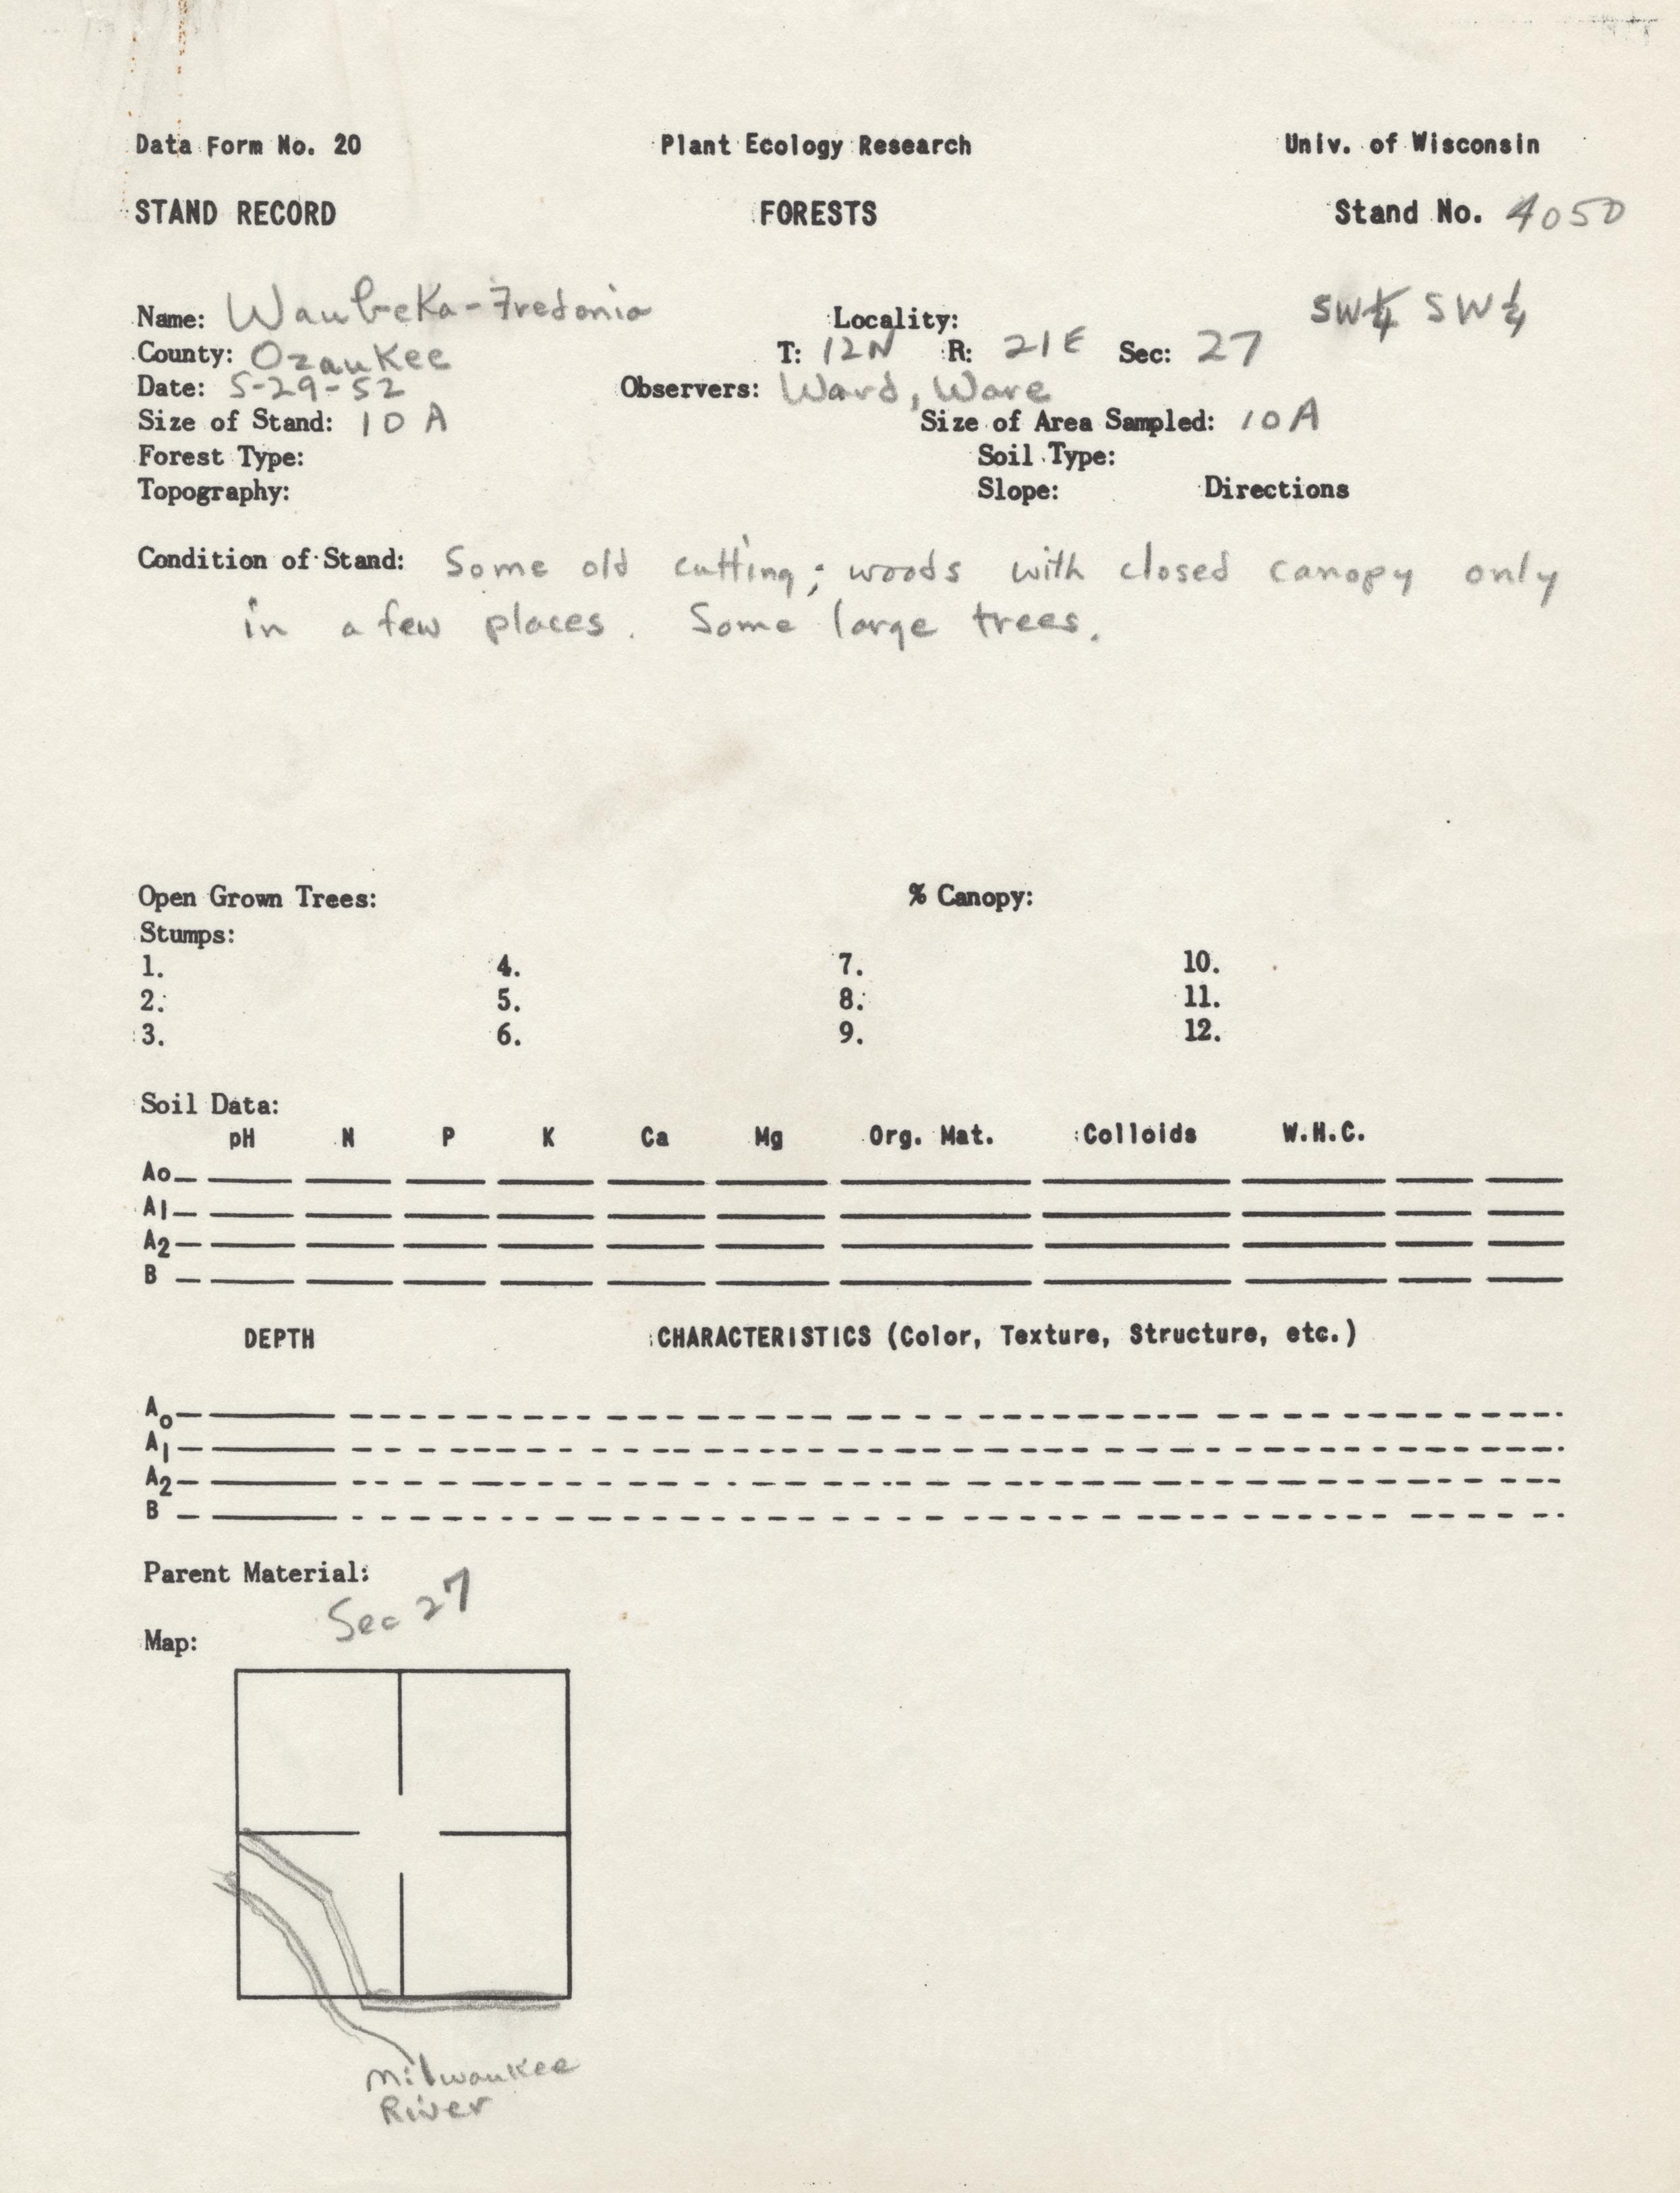 Data Form No. 20 Plant Ecology Research Univ. of Wisconsin
STAND RECORD FORESTS Stand No. 4050
Name: Waubeka-Fredonia Locality: SW¼ SW¼
County: Ozaukee T: 12N R: 21E Sec: 27
Date: 5-29-52 Observers: Ward, Ware
Size of Stand: 10 A Size of Area Sampled: 10 A
Forest Type: Soil Type:
Topography: Slope: Directions
Condition of Stand: Some old cutting; woods with closed canopy only
in a few places. Some large trees.
Open Grown Trees: % Canopy:
Stumps:
1. 4. 7. 10.
2. 5. 8. 11.
3. 6. 9. 12.
Soil Data:
pH N P K Ca Mg Org. Mat. Colloids W.H.C.
Ao
A1
A2
B
DEPTH CHARACTERISTICS (Color, Texture, Structure, etc.)
Ao
A1
A2
B
Parent Material:
Sec 27
Map:
Milwaukee
River